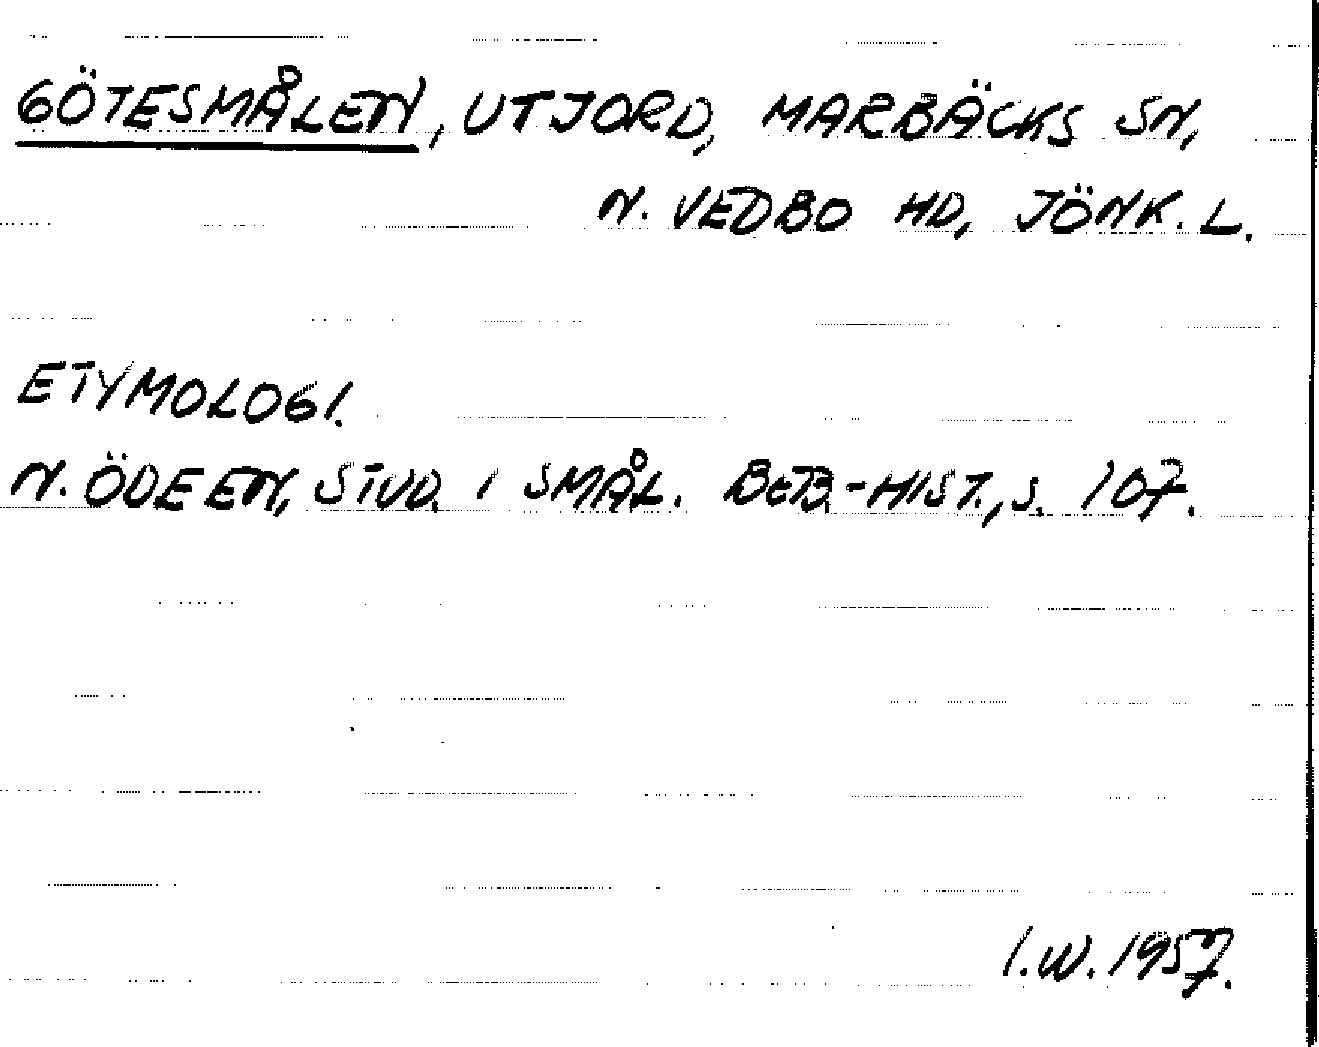 GÖTESMÅLEN, UTJORD, MARBÄCKS SN,
N. VEDBO HD, JÖNK. L.
ETYMOLOGI.
N. ÖDEEN, STUD. I SMÅL. BEB.-HIST., S. 107.
I.W. 1957.